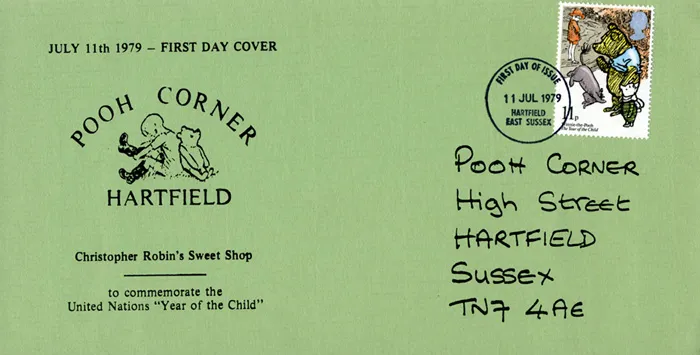 JULY 11th 1979 – FIRST DAY COVER
POOH CORNER
HARTFIELD
Christopher Robin's Sweet Shop
to commemorate the
United Nations "Year of the Child"
FIRST DAY OF ISSUE
11 JUL 1979
HARTFIELD
EAST SUSSEX
11p
Winnie-the-Pooh
The Year of the Child
POOH CORNER
High Street
HARTFIELD
SUSSEX
TN7 4AE